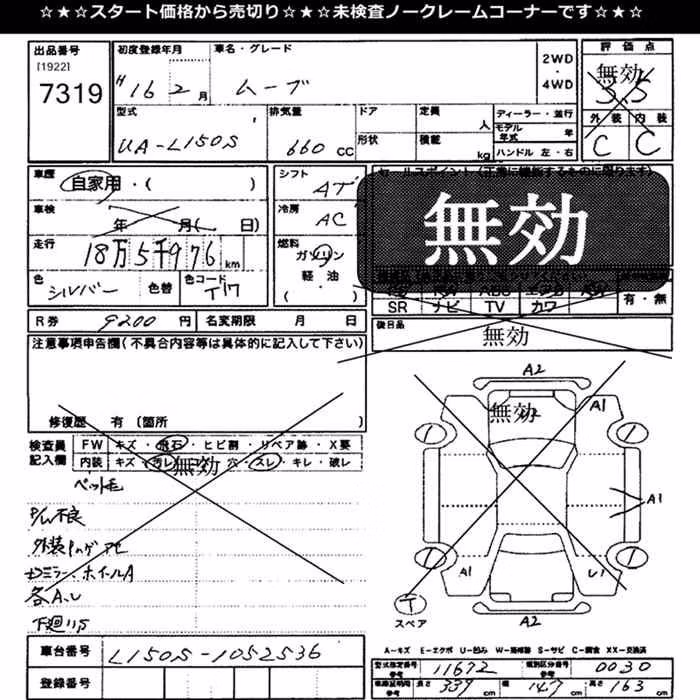 ☆★☆スタート価格から売切り☆★☆未検査ノークレームコーナーです☆★☆
出品番号 初度登録年月 車名・グレード 2WD・4WD 評価点
[1922]
7319 H16 2月 ムーブ 無効 3.5
型式 排気量 ドア 定員 人 ディーラー・並行 外装 内装
UA-L150S 660 CC 形状 積載 kg モデル年式 年 C C
ハンドル 左・右
車歴 自家用・( ) シフト AT
車検 年 月( 日) 冷房 AC 無効
走行 18万5千976km 燃料 ガソリン 軽・油 ( )
色 シルバー 色替 色コード T17
SR ナビ TV カワ 有・無
R券 9200円 名変期限 月 日 後日品 無効
注意事項申告欄(不具合内容等は具体的に記入して下さい)
修復歴 有 〔箇所 〕
検査員記入欄 FW キズ・飛石・ヒビ割・リペア跡・X要
内装 キズ・汚レ・穴・スレ・キレ・破レ
無効
ペット毛
P/W不良
ミラー、ホイールA
各A、U
A2
無効
A1
A1
A1 U1
T
スペア
A2
A-キズ E-エクボ U-凹み S-サビ C-腐食 XX-交換済
車台番号 L150S-1052536
登録番号
型式指定番号参考 11672 類別区分番号参考 0030
長さ 339 cm 幅 147 cm 高さ 163 cm